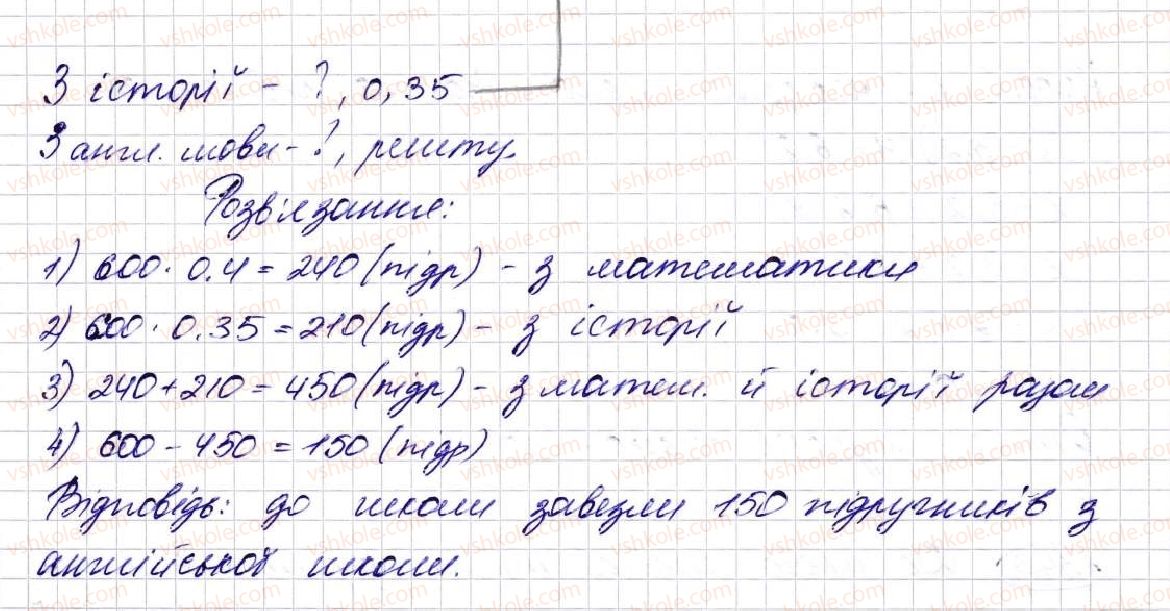 З історії - ?, 0,35
З англ. мови - ?, решту.
Розв'язання:
1) 600 · 0.4 = 240 (підр) - з математики
2) 600 · 0.35 = 210 (підр) - з історії
3) 240 + 210 = 450 (підр) - з матем. й історії разом
4) 600 - 450 = 150 (підр)
Відповідь: до школи завезли 150 підручників з
англійської школи.